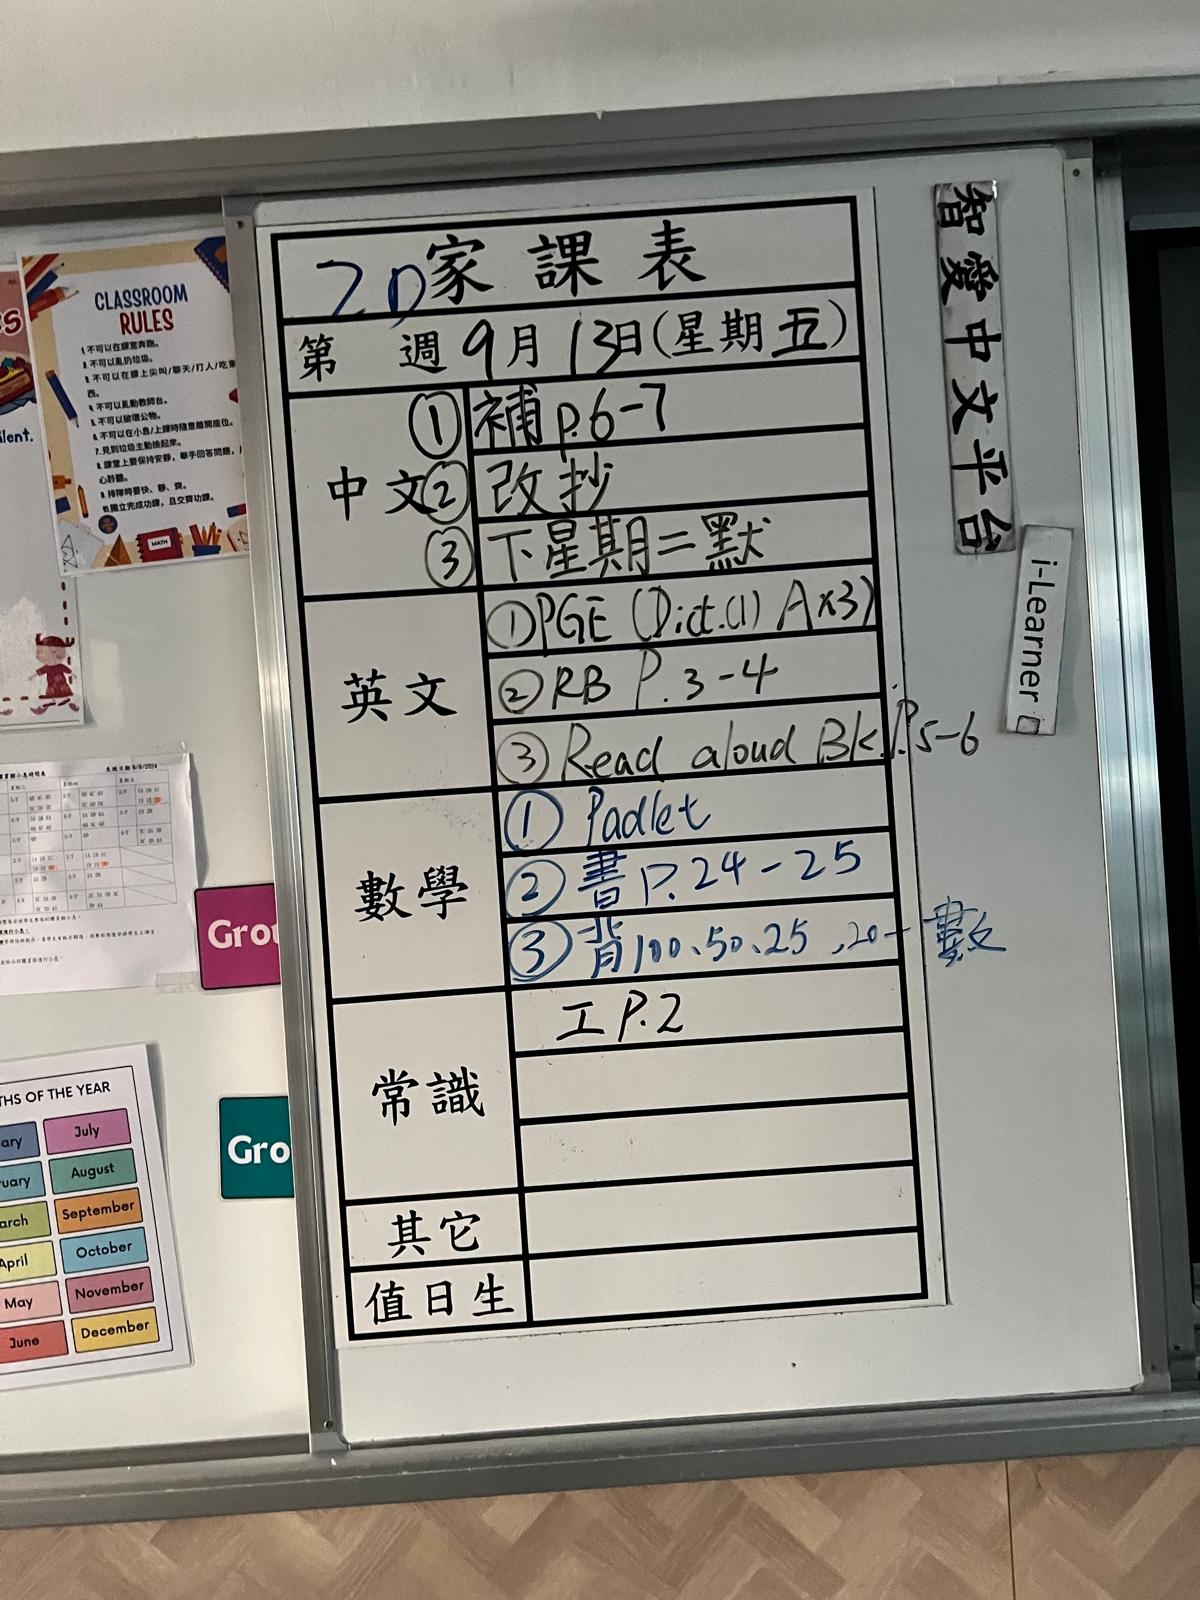 CLASSROOM
RULES
1.不可以在課室奔跑。
2.不可以亂扔垃圾。
3.不可以在課上尖叫/聊天/打人/吃東
西。
4.不可以亂動教師台。
5.不可以破壞公物。
6.不可以在小息/上課時隨意離開座位。
7.見到垃圾主動撿起來。
8.課堂上要保持安靜，舉手回答問題，
心聆聽。
9.排隊時要快、靜、齊。
10.獨立完成功課，且交齊功課。
MATH
ilent.
2D 家課表
第 週 9月 13日(星期五)
中文
① 補 p.6-7
② 改抄
③ 下星期二默
英文
① PGE (Dict.(1) A×3)
② RB P.3-4
③ Read aloud Bk.P.5-6
數學
① Padlet
② 書 P.24-25
③ 背100、50、25、20-數
常識
工 P.2
其它
值日生
智愛中文平台
i-Learner
Grou
Gro
THS OF THE YEAR
ary
July
uary
August
arch
September
April
October
May
November
June
December